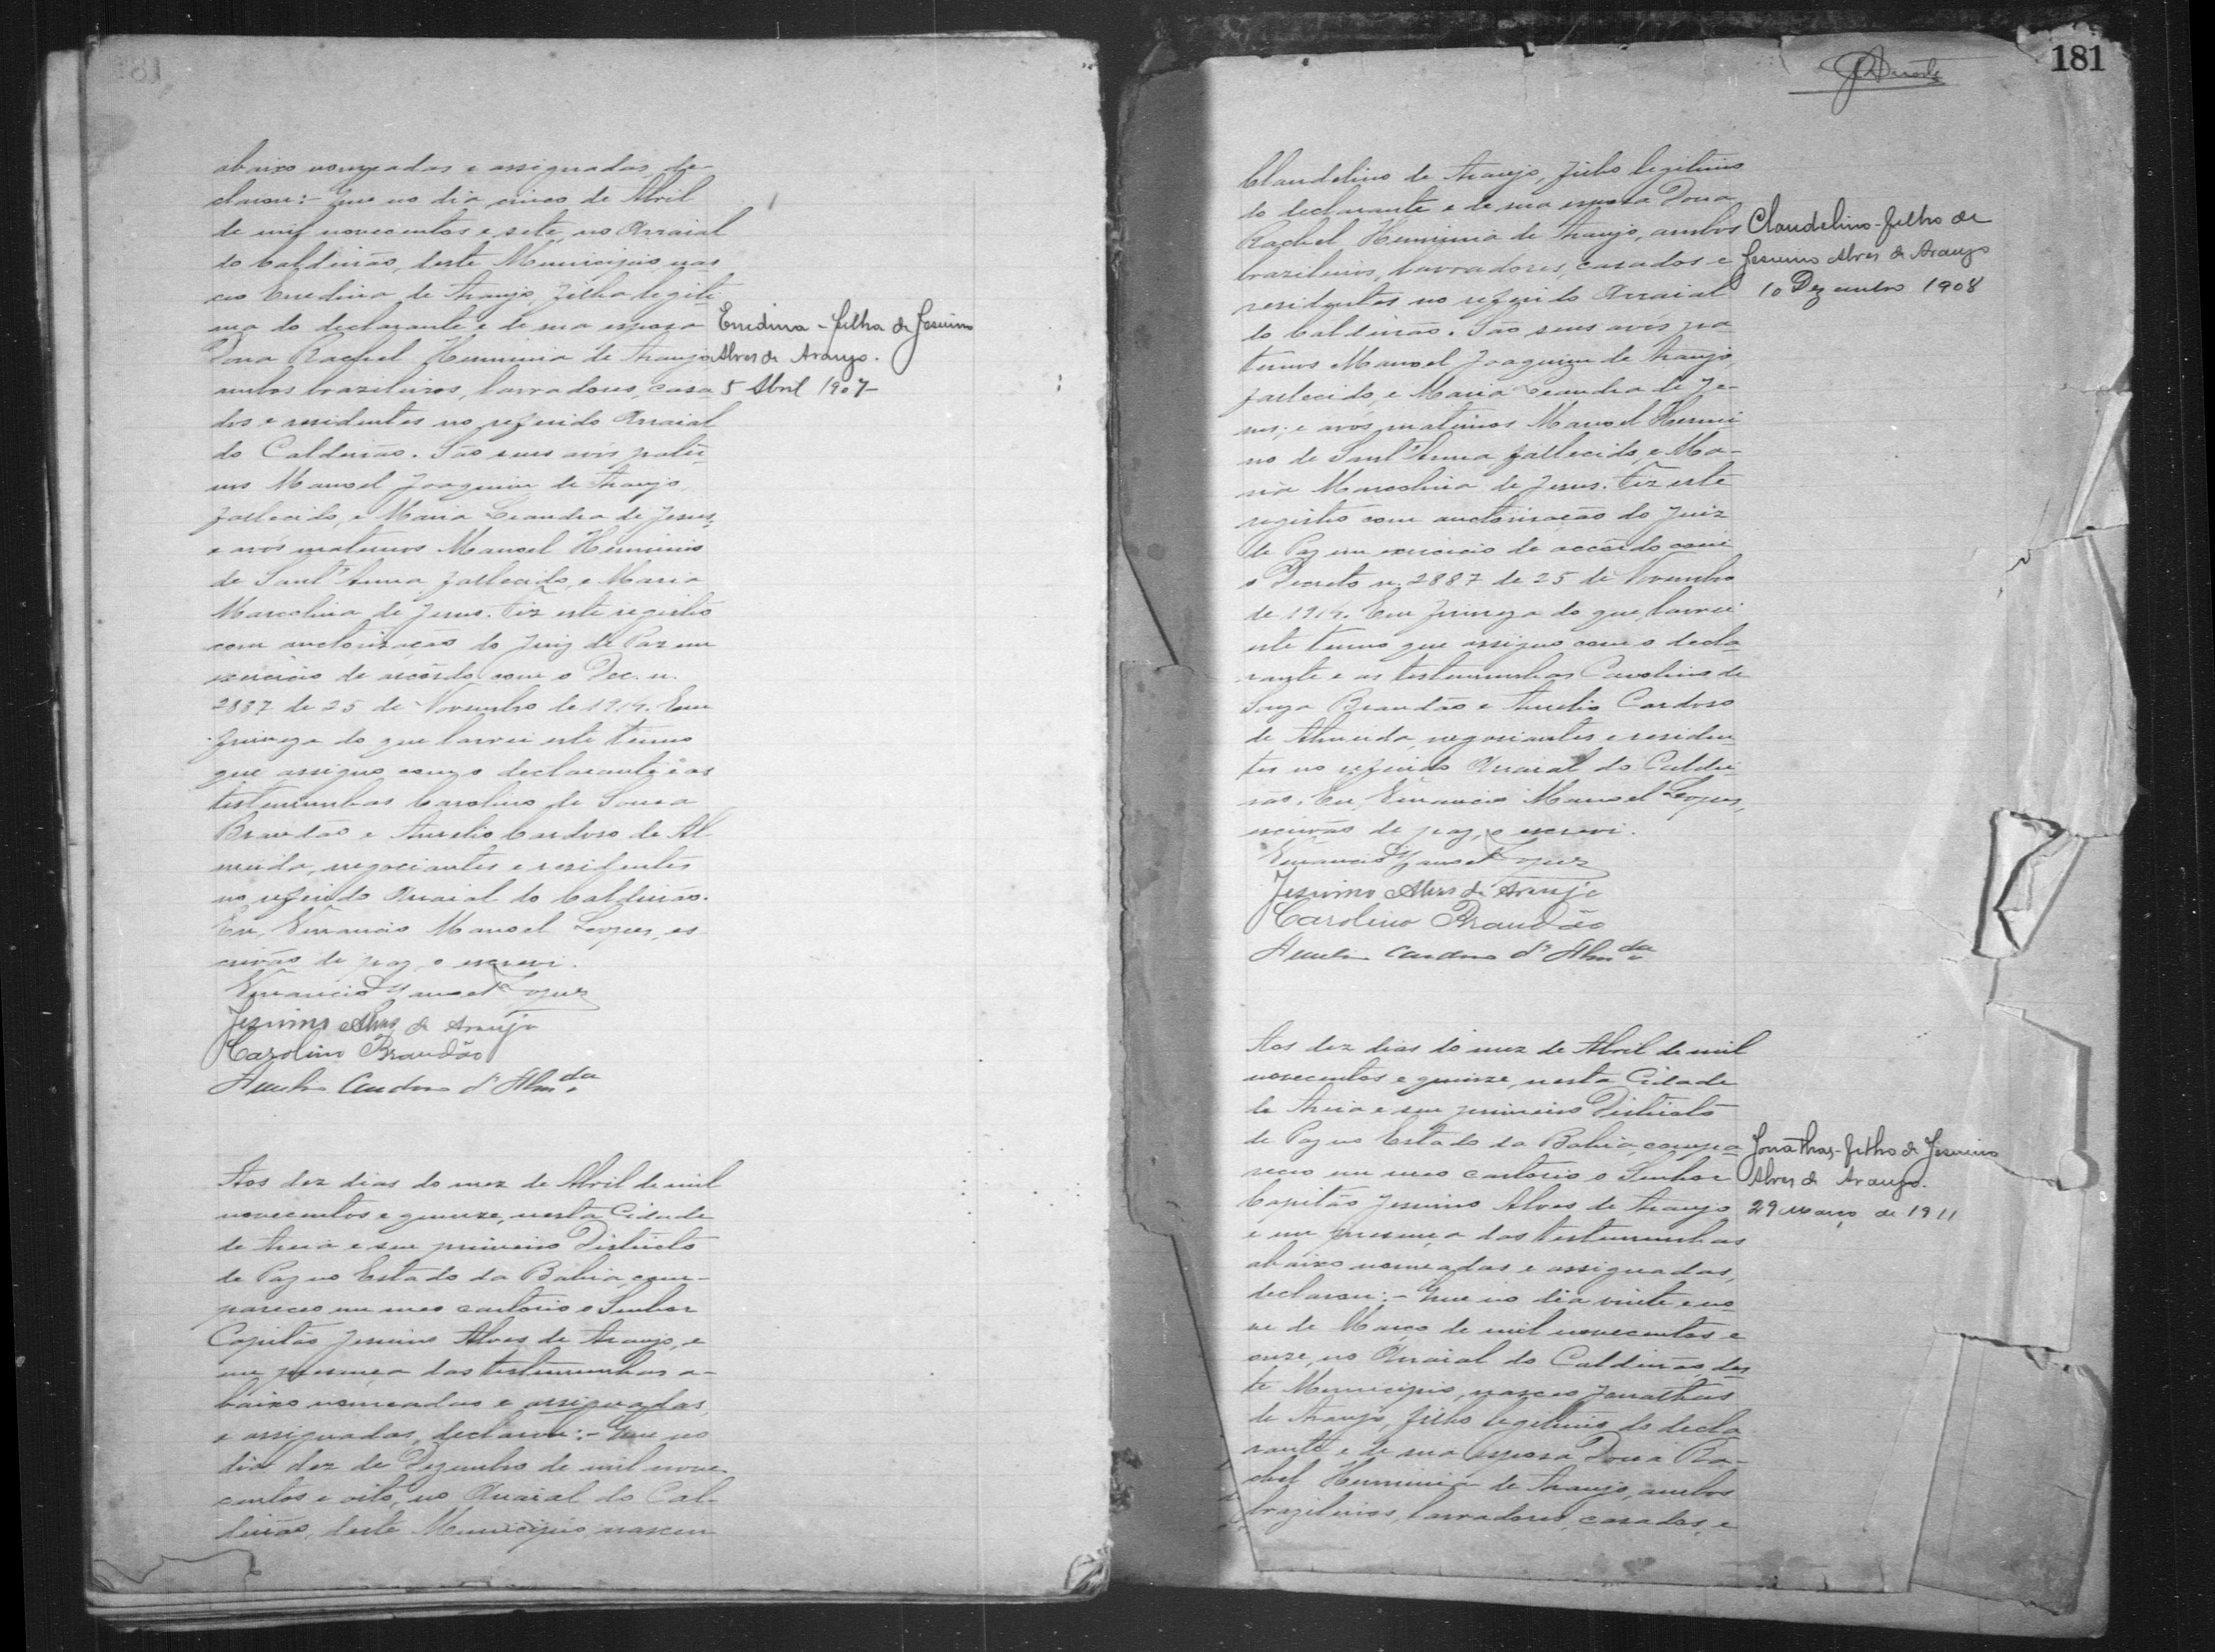 abaixo nomeadas e assignadas, de-
clarou:- Que no dia cinco de Abril
de mil novecentos e sete, no Arraial
do Caldeirão, deste Municipio, nas
ceu Enedina de Araujo, filha legiti
ma do declarante e de sua esposa
Dona Rachel Herminia de Araujo
ambos brazileiros, lavradores, casa
dos e residentes no referido Arraial
do Caldeirão. São seus avós pater
nos Manoel Joaquim de Araujo,
fallecido, e Maria Leandra de Jesus;
e avós maternos Manoel Herminio
de Sant'Anna fallecido, e Maria
Marcolina de Jesus. Fiz este registro
com auctorisação do Juiz de Paz em
exercicio de accôrdo com o Dec. n.
2887 de 25 de Novembro de 1914. Em
firmeza do que lavrei este termo
que assigno com o declarante e as
testemunhas Carolino de Souza
Brandão e Aurelio Cardoso de Al-
meida, negociantes e residentes
no referido Arraial do Caldeirão.
Eu, Venancio Manoel Lopes, es
crivão de paz, o escrevi.
Venancio Manoel Lopes
Jesuino Alves de Araujo
Carolino Brandão
Aurelio Cardoso d'Almda
Enedina - filha de Jesuino
Alves de Araujo.
5 Abril 1907
Aos dez dias do mez de Abril de mil
novecentos e quinze, nesta Cidade
de Areia e seu primeiro Districto
de Paz no Estado da Bahia, com-
pareceu em meu cartorio o Senhor
Capitão Jesuino Alves de Araujo, e
em presença das testemunhas a-
baixo nomeadas e assignadas,
e assignadas, declarou:- Que no
dia dez de Dezembro de mil nove
centos e oito, no Arraial do Cal-
deirão, deste Municipio, nasceu
181
Claudelino de Araujo, filho legitimo
do declarante e de sua esposa Dona
Rachel Herminia de Araujo, ambos
brazileiros, lavradores, casados e
residentes no referido Arraial
do Caldeirão. São seus avós pa
ternos Manoel Joaquim de Araujo,
fallecido, e Maria Leandra de Je-
sus; e avós maternos Manoel Hermi
nio de Sant'Anna fallecido, e Ma-
ria Marcolina de Jesus. Fiz este
registro com auctorisação do Juiz
de Paz em exercicio de accôrdo com
o Decreto n. 2887 de 25 de Novembro
de 1914. Em firmeza do que, lavrei
este termo que assigno com o decla
rante e as testemunhas Carolino de
Souza Brandão e Aurelio Cardoso
de Almeida, negociantes e residen
tes no referido Arraial do Caldei
rão. Eu, Venancio Manoel Lopes,
escrivão de paz, o escrevi.
Venancio Manoel Lopes
Jesuino Alves de Araujo
Carolino Brandão
Aurelio Cardoso d'Almda
Claudelino - filho de
Jesuino Alves de Araujo
10 Dezembro 1908
Aos dez dias do mez de Abril de mil
novecentos e quinze, nesta Cidade
de Areia e seu primeiro Districto
de Paz no Estado da Bahia, compa
receu em meu cartorio o Senhor
Capitão Jesuino Alves de Araujo
e em presença das testemunhas
abaixo nomeadas e assignadas,
declarou:- Que no dia vinte e no
ve de Março de mil novecentos e
onze, no Arraial do Caldeirão, des
te Municipio, nasceu Jonathas
de Araujo, filho legitimo do decla
rante e de sua esposa Dona Ra-
chel Herminia de Araujo, ambos
brazileiros, lavradores, casados, e
Jonathas - filho de Jesuino
Alves de Araujo.
29 Março de 1911